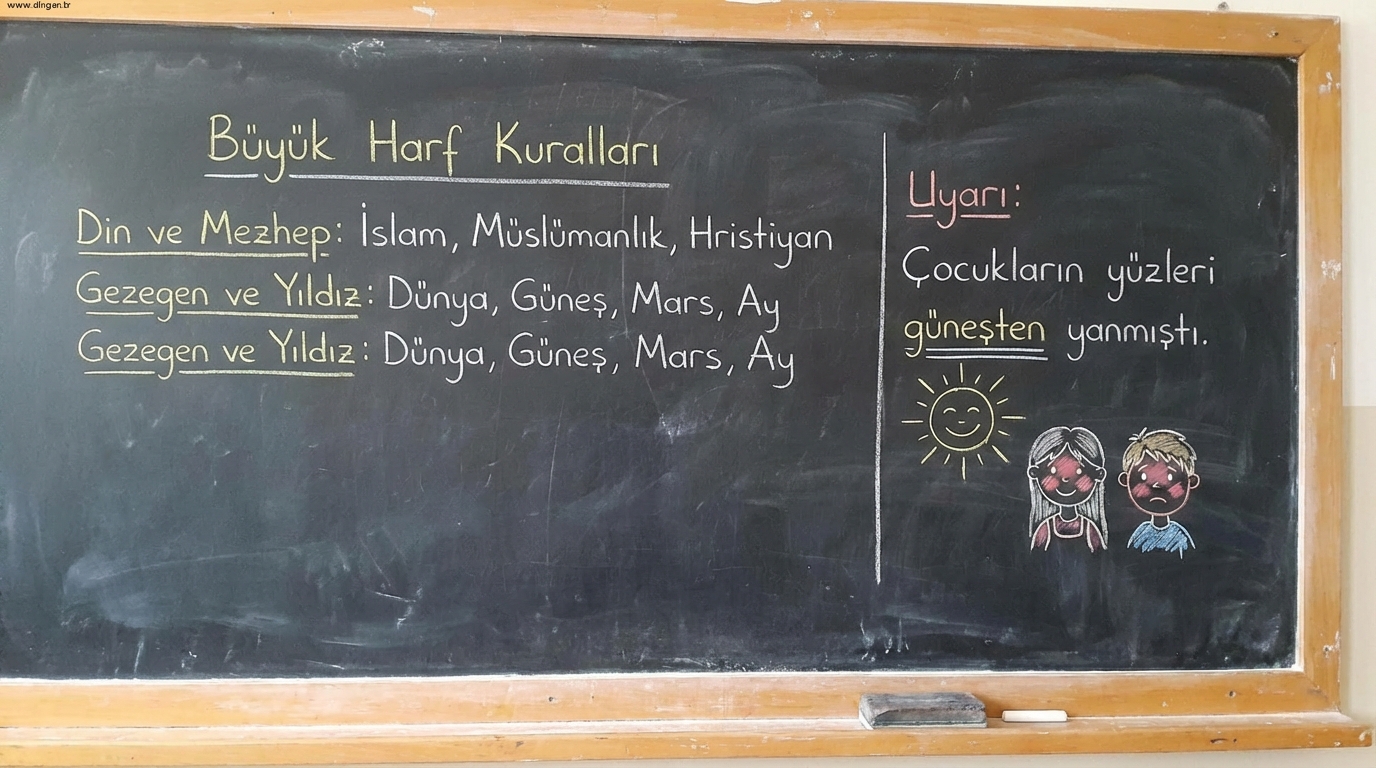 www.dlngen.br
Büyük Harf Kuralları
Din ve Mezhep: İslam, Müslümanlık, Hristiyan
Gezegen ve Yıldız: Dünya, Güneş, Mars, Ay
Gezegen ve Yıldız: Dünya, Güneş, Mars, Ay
Uyarı:
Çocukların yüzleri
güneşten yanmıştı.